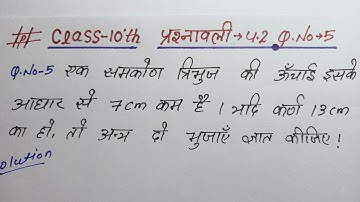 # Class-10'th प्रश्नावली→4.2 Q.No→5
Q.No-5 एक समकोण त्रिभुज की ऊँचाई इसके
आधार से 7cm कम है । यदि कर्ण 13cm
का हो, तो अन्य दो भुजाएँ ज्ञात कीजिए !
olution